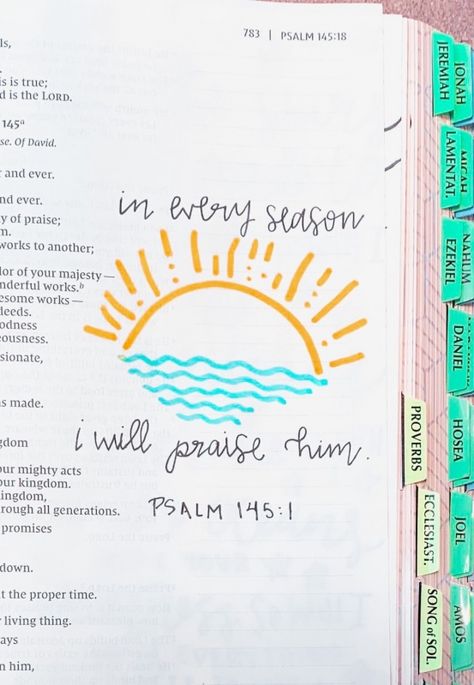 783 | PSALM 145:18
is is true;
d is the LORD.
145ᵃ
se. Of David.
and ever.
nd ever.
y of praise;
m.
works to another;
lor of your majesty—
nderful works.ᵇ
esome works—
deeds.
odness
eousness.
sionate,
as made.
gdom
our mighty acts
our kingdom.
kingdom,
rough all generations.
promises
down.
t the proper time.
living thing.
ays
n him,
in every season
i will praise him.
PSALM 145:1
JEREMIAH
JONAH
LAMENTAT.
MICAH
EZEKIEL
NAHUM
DANIEL
PROVERBS
HOSEA
ECCLESIAST.
JOEL
SONG of SOL.
AMOS